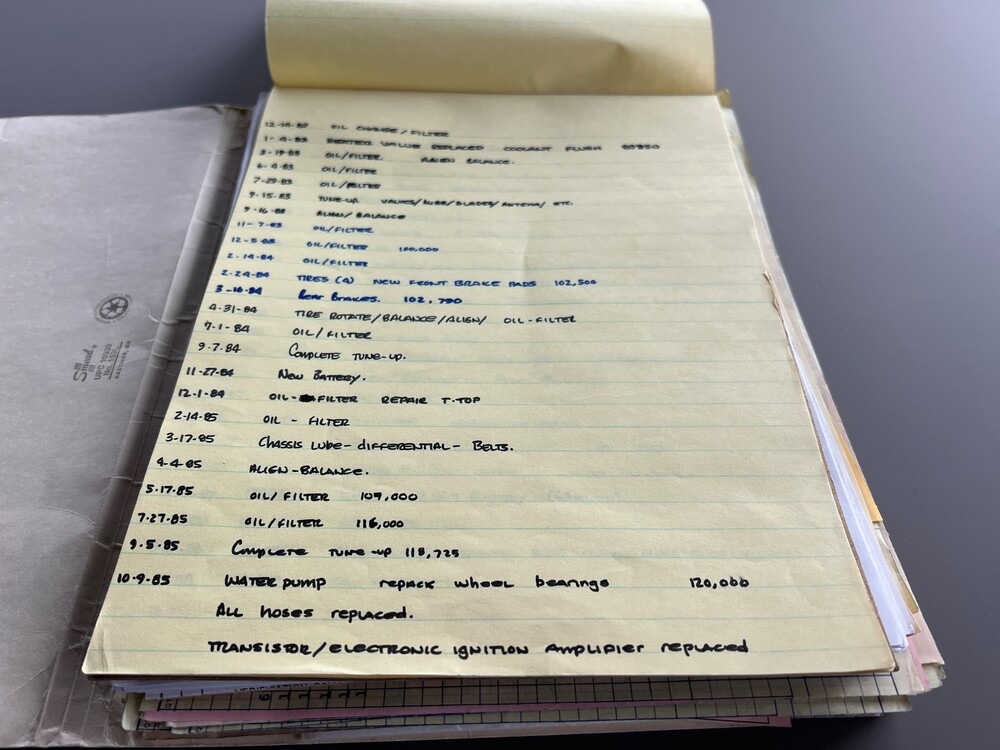 12-14-82 OIL CHANGE/FILTER
1-4-83 HEATER VALVE REPLACED COOLANT FLUSH
3-19-83 OIL/FILTER ALIGN BALANCE.
6-4-83 OIL/FILTER
7-29-83 OIL/FILTER
9-15-83 TUNE-UP VALVES/LUBE/BLADES/ANTENA/ ETC.
9-16-83 ALIGN/BALANCE
11-7-83 OIL/FILTER
12-5-83 OIL/FILTER 100,000
2-14-84 OIL/FILTER
2-24-84 TIRES (4) NEW FRONT BRAKE PADS 102,500
3-10-84 Rear Brakes. 102,790
4-31-84 TIRE ROTATE/BALANCE/ALIGN/ OIL-FILTER
7-1-84 OIL/FILTER
9-7-84 Complete TUNE-UP.
11-27-84 New Battery.
12-1-84 OIL-FILTER REPAIR T-TOP
2-14-85 OIL - FILTER
3-17-85 CHASSIS LUBE-DIFFERENTIAL- BELTS.
4-4-85 ALIGN-BALANCE.
5-17-85 OIL/FILTER 109,000
7-27-85 OIL/FILTER 116,000
9-5-85 Complete TUNE-UP 118,725
10-9-85 WATER PUMP repack wheel bearings 120,000
All hoses replaced.
TRANSISTOR/ELECTRONIC IGNITION AMPLIFIER replaced
Smead's
UPC 10330
HASTINGS, MN